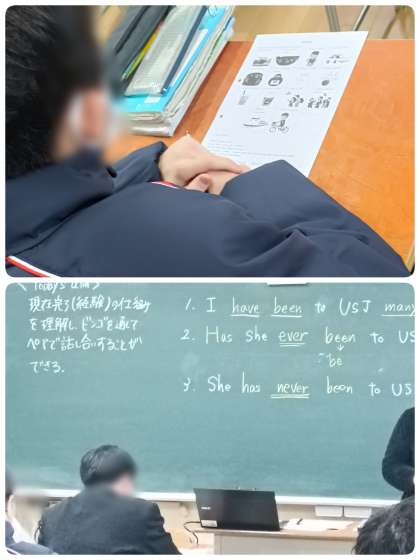 Today's aim
現在完了(経験)の仕組み
を理解し、ビンゴを通して
ペアで話し合いすることが
できる.
1. I have been to USJ many
2. Has she ever been to US
be
3. She has never been to US